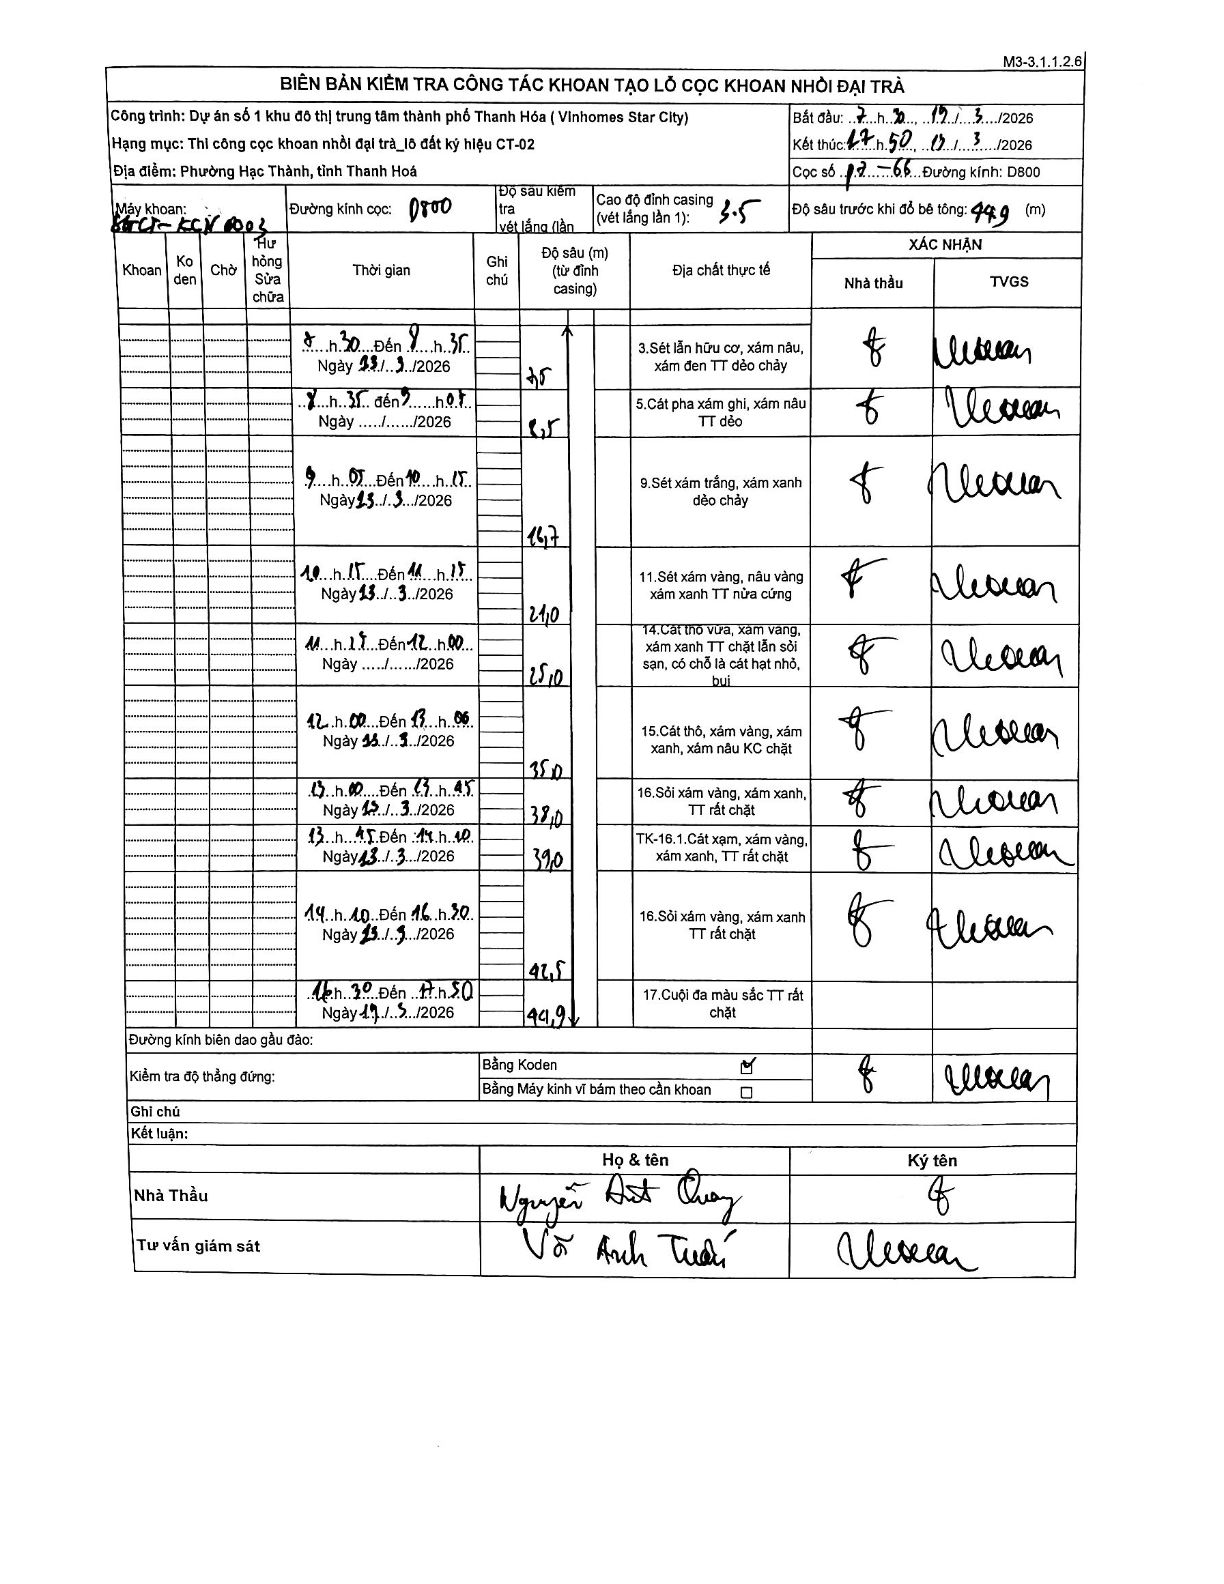 M3-3.1.1.2.6
BIÊN BẢN KIỂM TRA CÔNG TÁC KHOAN TẠO LỖ CỌC KHOAN NHỒI ĐẠI TRÀ
Công trình: Dự án số 1 khu đô thị trung tâm thành phố Thanh Hóa ( Vinhomes Star City)
Bắt đầu: ..7...h.30..., ..13./...3..../2026
Hạng mục: Thi công cọc khoan nhồi đại trà_lô đất ký hiệu CT-02
Kết thúc: 17...h.50..., ..13./...3..../2026
Địa điểm: Phường Hạc Thành, tỉnh Thanh Hoá
Cọc số ..P2...-66...Đường kính: D800
Máy khoan:
Đường kính cọc: D800
Độ sâu kiểm tra
vét lắng (lần
Cao độ đỉnh casing
(vét lắng lần 1): 3.5
Độ sâu trước khi đổ bê tông: 44,9 (m)
Khoan
Ko den
Chờ
Hư hỏng Sửa chữa
Thời gian
Ghi chú
Độ sâu (m) (từ đỉnh casing)
Địa chất thực tế
XÁC NHẬN
Nhà thầu
TVGS
....h.30...Đến .8....h..35.
Ngày 13./..3../2026
3.Sét lẫn hữu cơ, xám nâu, xám đen TT dẻo chảy
..8...h..35. đến 9......h.05.
Ngày ...../....../2026
8,5
5.Cát pha xám ghi, xám nâu TT dẻo
9....h..05...Đến 10....h..15..
Ngày 13../..3.../2026
16,7
9.Sét xám trắng, xám xanh dẻo chảy
10...h..15....Đến 11....h..15..
Ngày 13../..3.../2026
21,0
11.Sét xám vàng, nâu vàng xám xanh TT nửa cứng
11...h..15...Đến 12..h.00..
Ngày ...../....../2026
25,0
14.Cát thô vừa, xám vàng, xám xanh TT chặt lẫn sỏi sạn, có chỗ là cát hạt nhỏ, bụi
12..h.00....Đến 13...h..00.
Ngày 13../..3.../2026
35,0
15.Cát thô, xám vàng, xám xanh, xám nâu KC chặt
13..h..00....Đến .13...h..45.
Ngày 13../...3.../2026
38,0
16.Sỏi xám vàng, xám xanh, TT rất chặt
13..h...45.Đến ..14..h..10..
Ngày 13../..3..../2026
39,0
TK-16.1.Cát xạm, xám vàng, xám xanh, TT rất chặt
14..h..10..Đến .16..h.30..
Ngày 13../..3.../2026
42,5
16.Sỏi xám vàng, xám xanh TT rất chặt
..16.h..30..Đến ..17.h.50
Ngày 13./...3.../2026
44,9
17.Cuội đa màu sắc TT rất chặt
Đường kính biên dao gầu đào:
Kiểm tra độ thẳng đứng:
Bằng Koden
Bằng Máy kinh vĩ bám theo cần khoan
Ghi chú
Kết luận:
Họ & tên
Ký tên
Nhà Thầu
Nguyễn
Tư vấn giám sát
Võ Anh Tuấn